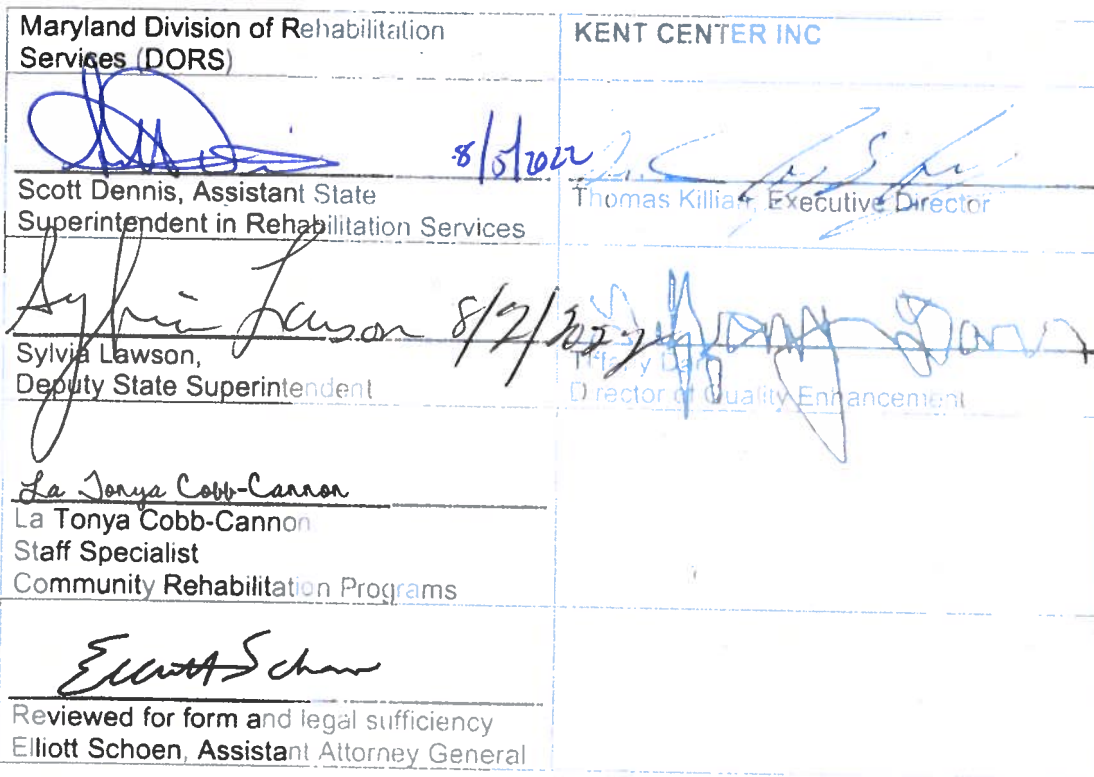 Maryland Division of Rehabilitation
Services (DORS)
KENT CENTER INC
8/5/2022
Scott Dennis, Assistant State
Superintendent in Rehabilitation Services
Thomas Killian, Executive Director
Sylvia Lawson 8/2/2022
Sylvia Lawson,
Deputy State Superintendent
Tiffany
Director of Quality Enhancement
La Tonya Cobb-Cannon
La Tonya Cobb-Cannon
Staff Specialist
Community Rehabilitation Programs
Elliott Schoen
Reviewed for form and legal sufficiency
Elliott Schoen, Assistant Attorney General